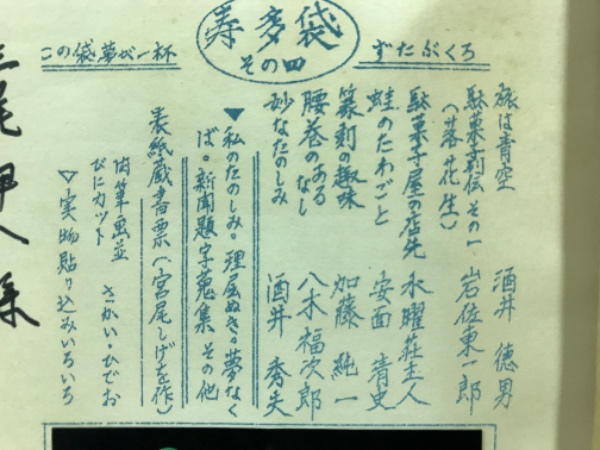 寿多袋
その四
ずたぶくろ
この袋夢が一杯
旅は青空 酒井徳男
駄菓子列伝 その一
(落花生) 岩佐東一郎
駄菓子屋の店先 水曜荘主人
蛙のたわごと 安面青史
篆刻の趣味 加藤純一
腰巻のあるなし 八木福次郎
妙なたのしみ 酒井秀夫
▼私のたのしみ。理屈ぬき。夢なく
ば。新聞題字蒐集 その他
表紙蔵書票(宮尾しげを作)
肉筆画並
びにカット さかい・ひでお
▽実物貼り込みいろいろ